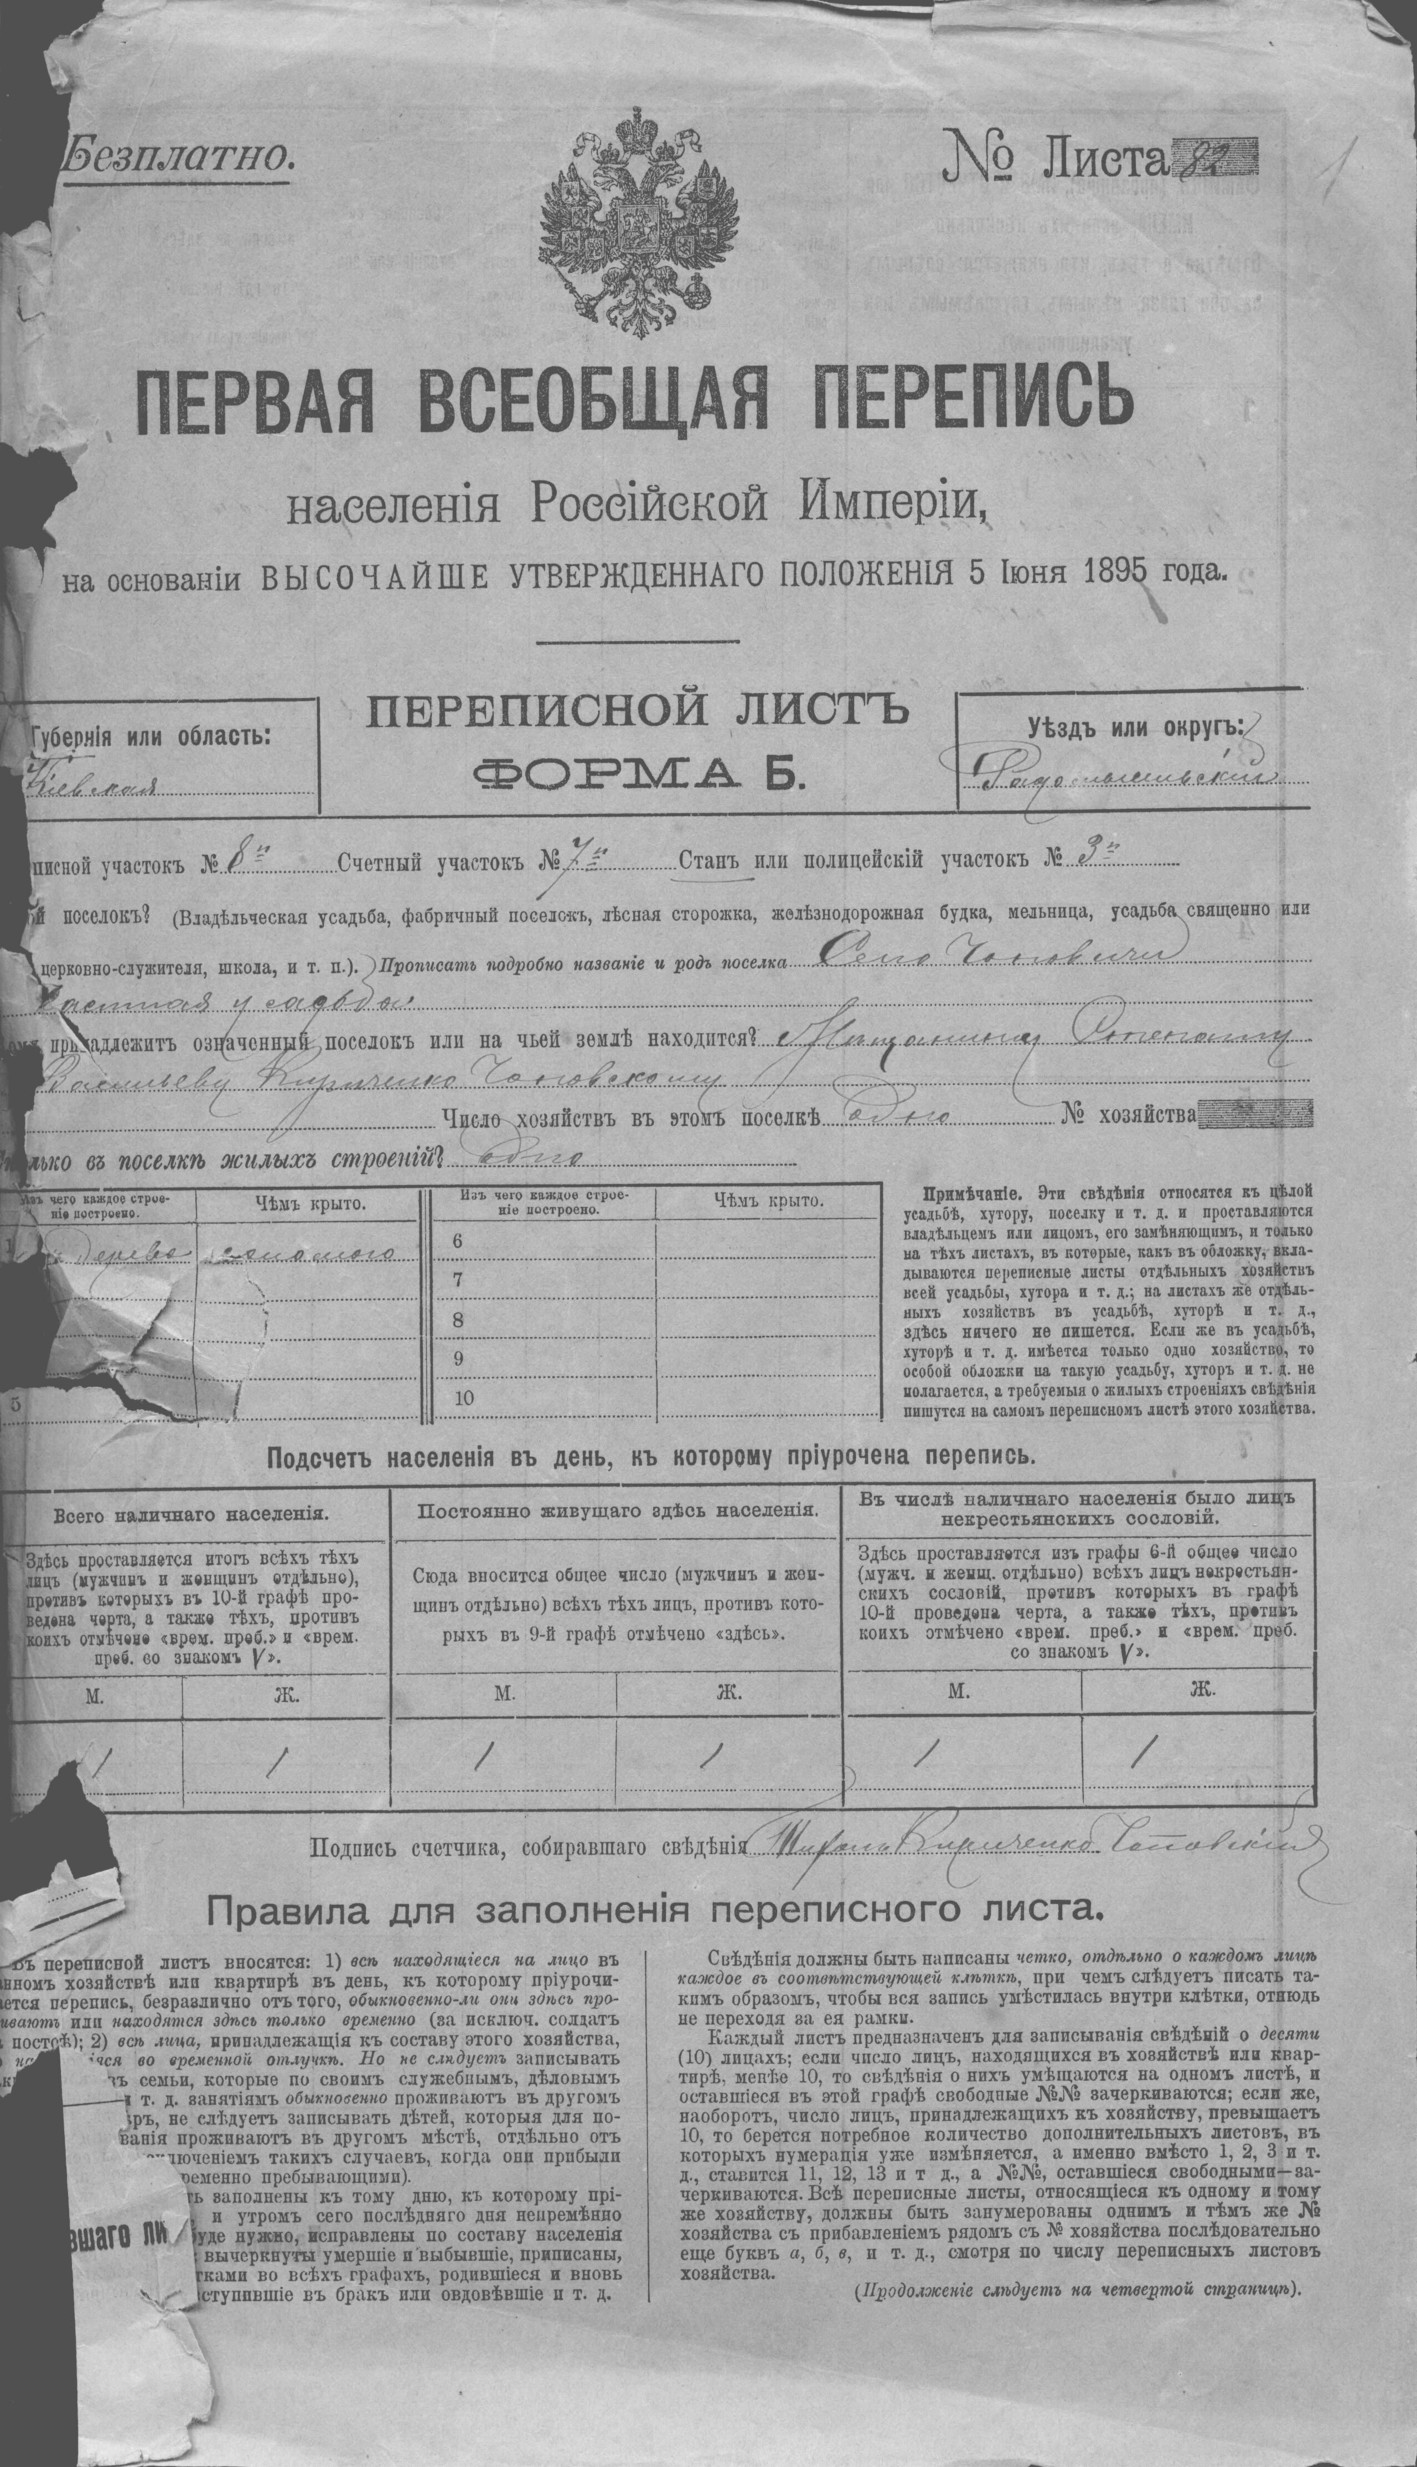 Безплатно.
№ Листа 82
1
ПЕРВАЯ ВСЕОБЩАЯ ПЕРЕПИСЬ
населенія Россійской Имперіи,
на основаніи ВЫСОЧАЙШЕ УТВЕРЖДЕННАГО ПОЛОЖЕНІЯ 5 Іюня 1895 года.
Губернія или область:
Кіевская
ПЕРЕПИСНОЙ ЛИСТЪ
ФОРМА Б.
Уѣздъ или округъ:
Радомысльскій
писной участокъ № 8й Счетный участокъ № 7й Станъ или полицейскій участокъ № 3й
й поселокъ? (Владѣльческая усадьба, фабричный поселокъ, лѣсная сторожка, желѣзнодорожная будка, мельница, усадьба священно или
церковно-служителя, школа, и т. п.). Прописать подробно названіе и родъ поселка Село Чоповичи
Частная усадьба
принадлежитъ означенный поселокъ или на чьей землѣ находится? Мѣщанину Степану
Васильеву Кириченко Чоповскому
Число хозяйствъ въ этомъ поселкѣ одно № хозяйства
лько въ поселкѣ жилыхъ строеній? одно
Изъ чего каждое строе-
ніе построено.
Чѣмъ крыто.
Изъ чего каждое строе-
ніе построено.
Чѣмъ крыто.
1 дерева соломою
6
7
8
9
5
10
Примѣчаніе. Эти свѣдѣнія относятся къ цѣлой
усадьбѣ, хутору, поселку и т. д. и проставляются
владѣльцемъ или лицомъ, его замѣняющимъ, и только
на тѣхъ листахъ, въ которые, какъ въ обложку, вкла-
дываются переписные листы отдѣльныхъ хозяйствъ
всей усадьбы, хутора и т. д.; на листахъ же отдѣль-
ныхъ хозяйствъ въ усадьбѣ, хуторѣ и т. д.,
здѣсь ничего не пишется. Если же въ усадьбѣ,
хуторѣ и т. д. имѣется только одно хозяйство, то
особой обложки на такую усадьбу, хуторъ и т. д. не
полагается, а требуемыя о жилыхъ строеніяхъ свѣдѣнія
пишутся на самомъ переписномъ листѣ этого хозяйства.
Подсчетъ населенія въ день, къ которому пріурочена перепись.
Всего наличнаго населенія.
Постоянно живущаго здѣсь населенія.
Въ числѣ наличнаго населенія было лицъ
некрестьянскихъ сословій.
Здѣсь проставляется итогъ всѣхъ тѣхъ
лицъ (мужчинъ и женщинъ отдѣльно),
противъ которыхъ въ 10-й графѣ про-
ведена черта, а также тѣхъ, противъ
коихъ отмѣчено «врем. преб.» и «врем.
преб. со знакомъ V».
Сюда вносится общее число (мужчинъ и жен-
щинъ отдѣльно) всѣхъ тѣхъ лицъ, противъ кото-
рыхъ въ 9-й графѣ отмѣчено «здѣсь».
Здѣсь проставляется изъ графы 6-й общее число
(мужч. и женщ. отдѣльно) всѣхъ лицъ некрестьян-
скихъ сословій, противъ которыхъ въ графѣ
10-й проведена черта, а также тѣхъ, противъ
коихъ отмѣчено «врем. преб.» и «врем. преб.
со знакомъ V».
М. Ж. М. Ж. М. Ж.
1 1 1 1 1 1
Подпись счетчика, собиравшаго свѣдѣнія Кириченко Чоповскій
Правила для заполненія переписного листа.
Въ переписной листъ вносятся: 1) всѣ находящіеся на лицо въ
нномъ хозяйствѣ или квартирѣ въ день, къ которому пріурочи-
ется перепись, безразлично отъ того, обыкновенно-ли они здѣсь про-
иваютъ или находятся здѣсь только временно (за исключ. солдатъ
постоѣ); 2) всѣ лица, принадлежащія къ составу этого хозяйства,
на іяся во временной отлучкѣ. Но не слѣдуетъ записывать
ъ семьи, которые по своимъ служебнымъ, дѣловымъ
и т. д. занятіямъ обыкновенно проживаютъ въ другомъ
ѣръ, не слѣдуетъ записывать дѣтей, которыя для по-
ванія проживаютъ въ другомъ мѣстѣ, отдѣльно отъ
ключеніемъ такихъ случаевъ, когда они прибыли
ременно пребывающими).
ть заполнены къ тому дню, къ которому прі-
и утромъ сего послѣдняго дня непремѣнно
вшаго ли
уде нужно, исправлены по составу населенія
вычеркнуты умершіе и выбывшіе, приписаны,
тками во всѣхъ графахъ, родившіеся и вновь
ступившіе въ бракъ или овдовѣвшіе и т. д.
Свѣдѣнія должны быть написаны четко, отдѣльно о каждомъ лицѣ
каждое въ соотвѣтствующей клѣткѣ, при чемъ слѣдуетъ писать та-
кимъ образомъ, чтобы вся запись умѣстилась внутри клѣтки, отнюдь
не переходя за ея рамки.
Каждый листъ предназначенъ для записыванія свѣдѣній о десяти
(10) лицахъ; если число лицъ, находящихся въ хозяйствѣ или квар-
тирѣ, менѣе 10, то свѣдѣнія о нихъ умѣщаются на одномъ листѣ, и
оставшіеся въ этой графѣ свободные №№ зачеркиваются; если же,
наоборотъ, число лицъ, принадлежащихъ къ хозяйству, превышаетъ
10, то берется потребное количество дополнительныхъ листовъ, въ
которыхъ нумерація уже измѣняется, а именно вмѣсто 1, 2, 3 и т.
д., ставится 11, 12, 13 и т д., а №№, оставшіеся свободными—за-
черкиваются. Всѣ переписные листы, относящіеся къ одному и тому
же хозяйству, должны быть занумерованы однимъ и тѣмъ же №
хозяйства съ прибавленіемъ рядомъ съ № хозяйства послѣдовательно
еще буквъ а, б, в, и т. д., смотря по числу переписныхъ листовъ
хозяйства.
(Продолженіе слѣдуетъ на четвертой страницѣ).